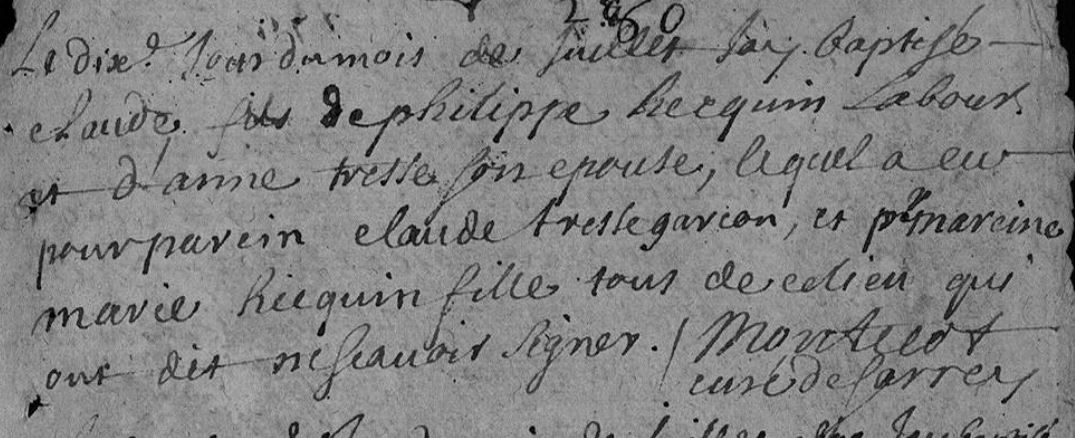 Le dixe. Jour du mois de Juillet Jay baptisé
claude, fils de philippe hecquin Labour.
et d'anne tresse son epouse, lequel a eu
pour parein claude tresse garcon, et pr mareine
marie hecquin fille tous de ce lieu qui
ont dit ne scavoir signer. / Montecot
curé de Sarrey